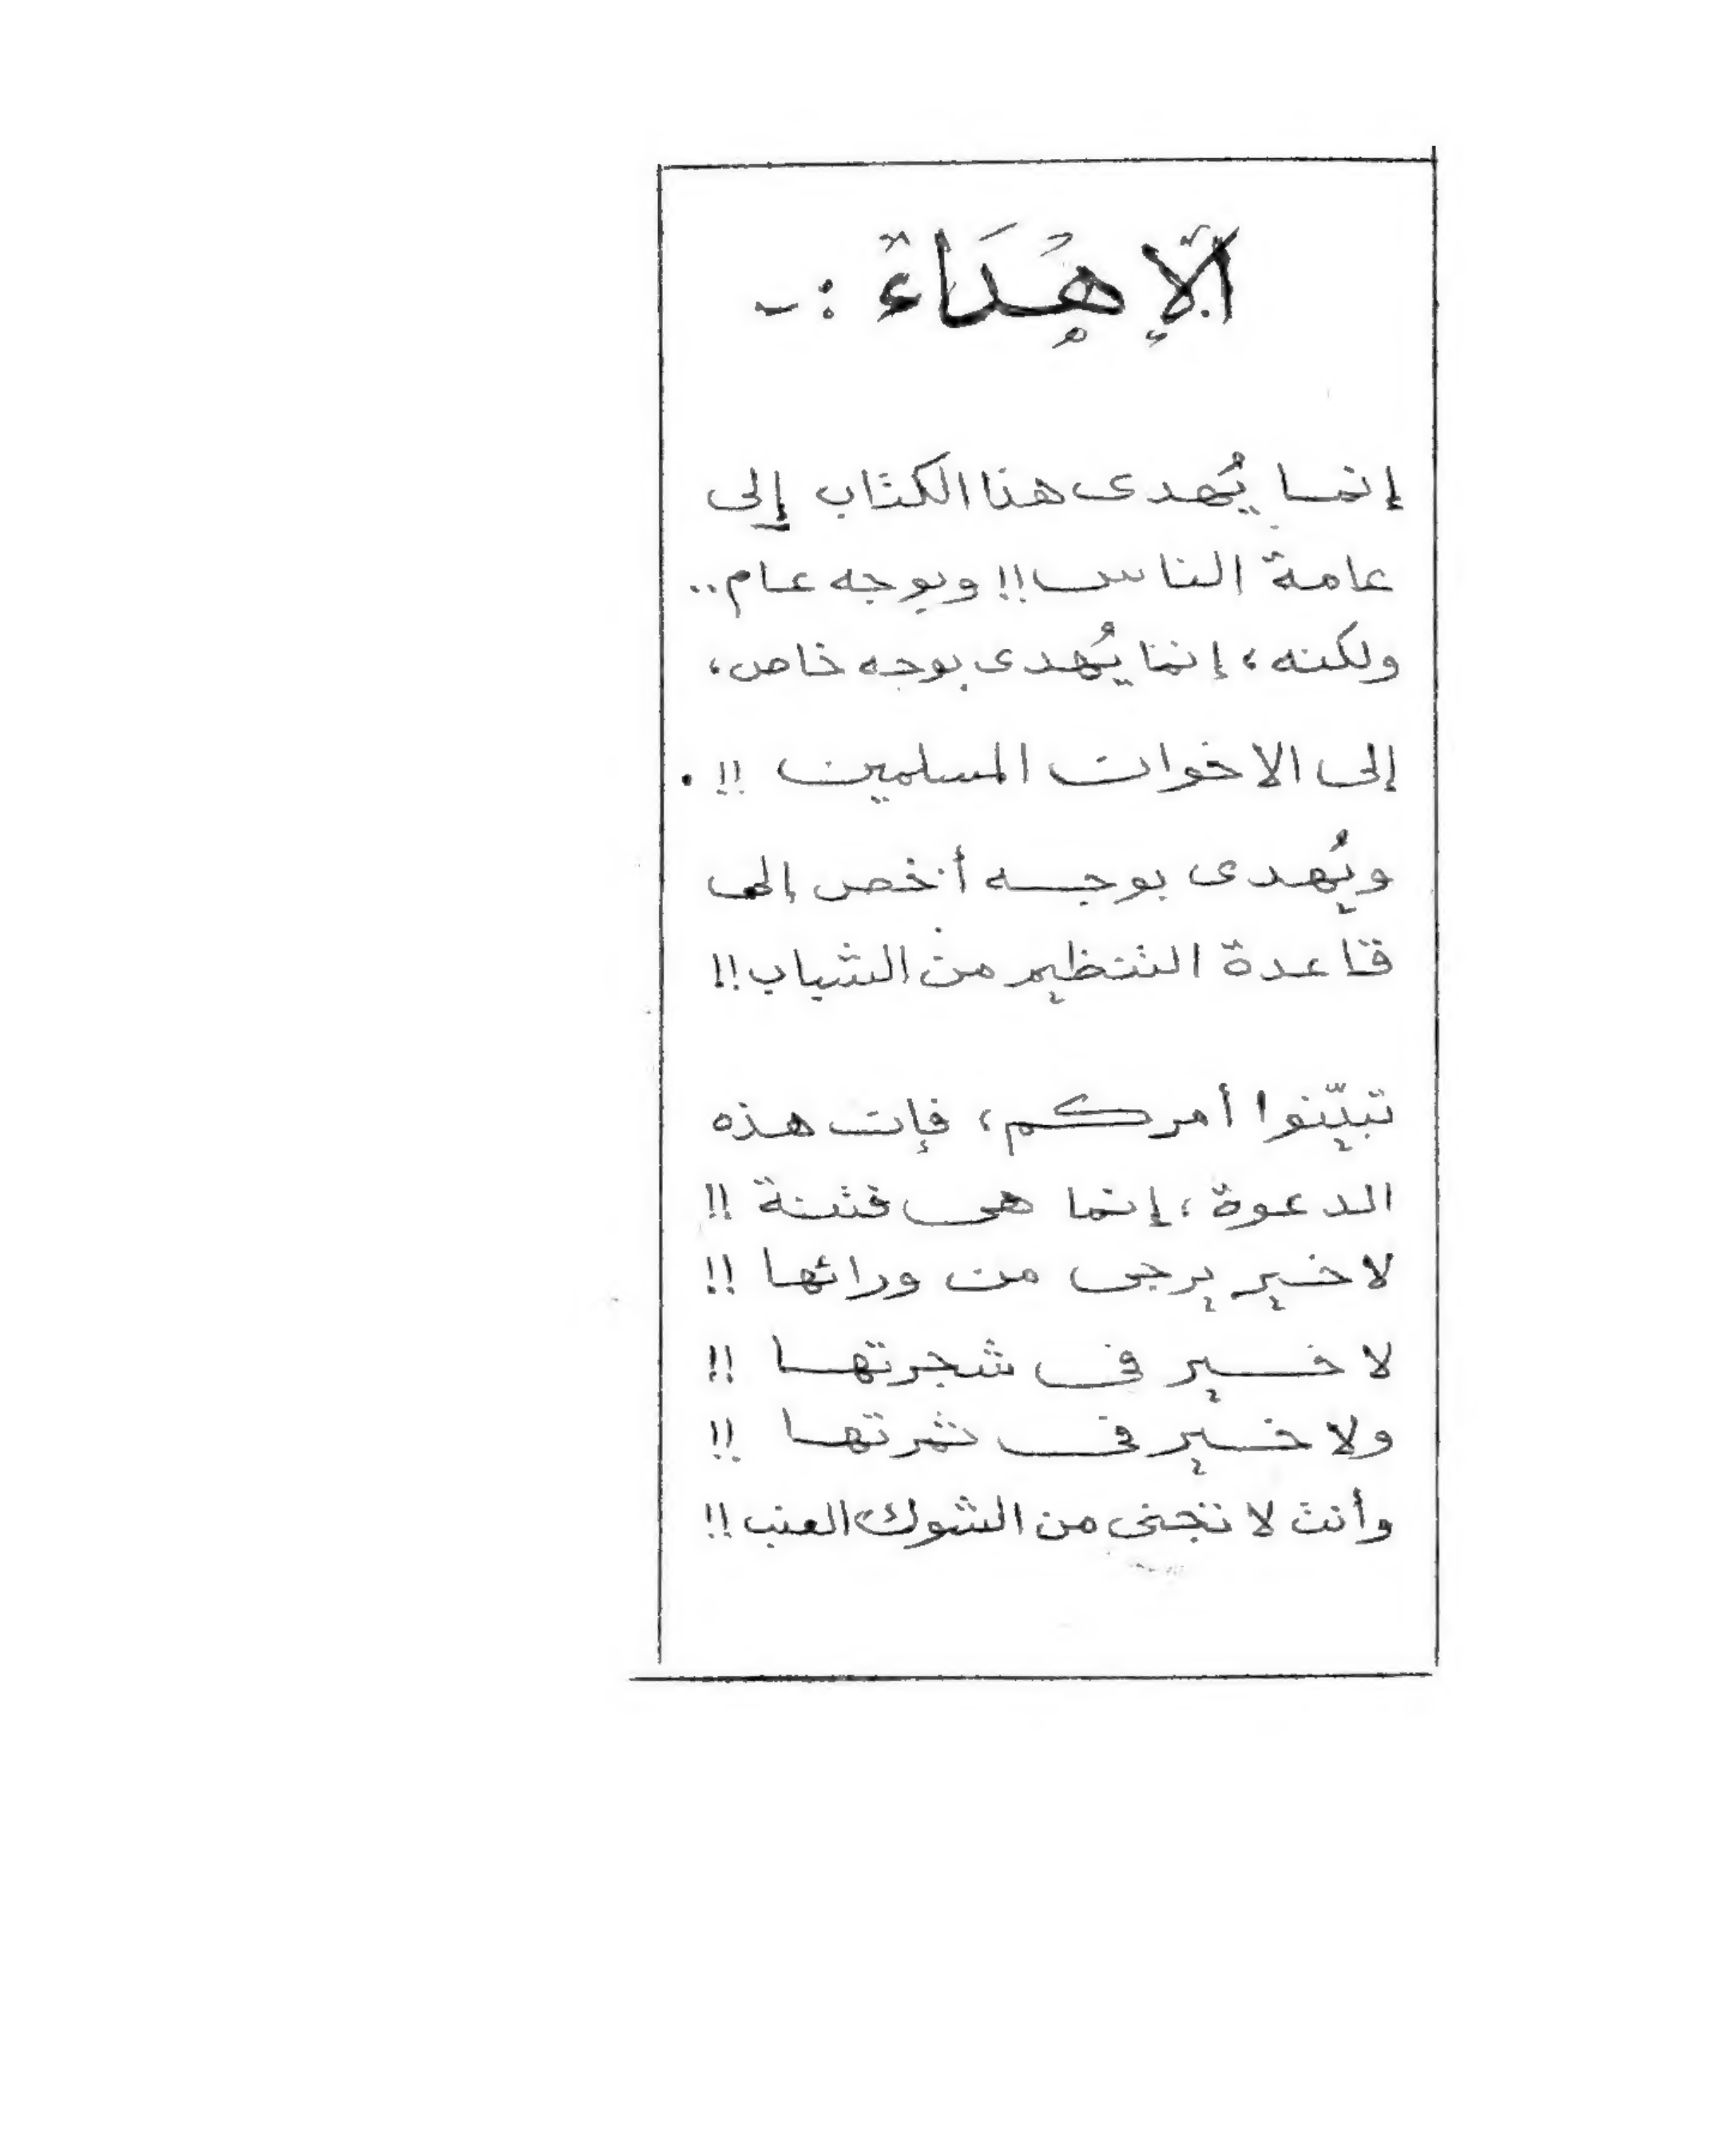 الإهداء :-
إنما يُهدى هذا الكتاب إلى
عامة الناس!! وبوجه عام..
ولكنه، إنما يُهدى بوجه خاص،
إلى الاخوان المسلمين !!.
ويُهدى بوجه أخص إلى
قاعدة التنظيم من الشباب!!
تبيّنوا أمركم، فإن هذه
الدعوة، إنما هى فتنة !!
لا خير يرجى من ورائها !!
لا خير فى شجرتها !!
ولا خير فى ثمرتها !!
وأنت لا تجنى من الشوك العنب!!